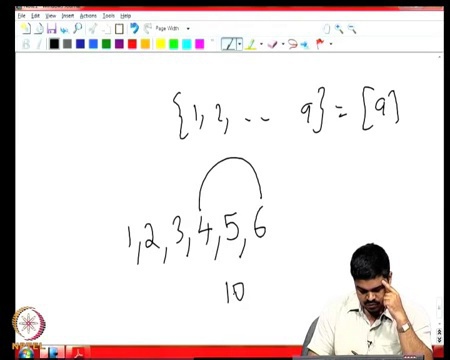 File Edit View Insert Actions Tools Help
Page Width
{1, 2, .. 9} = [9]
1,2,3,4,5,6
10